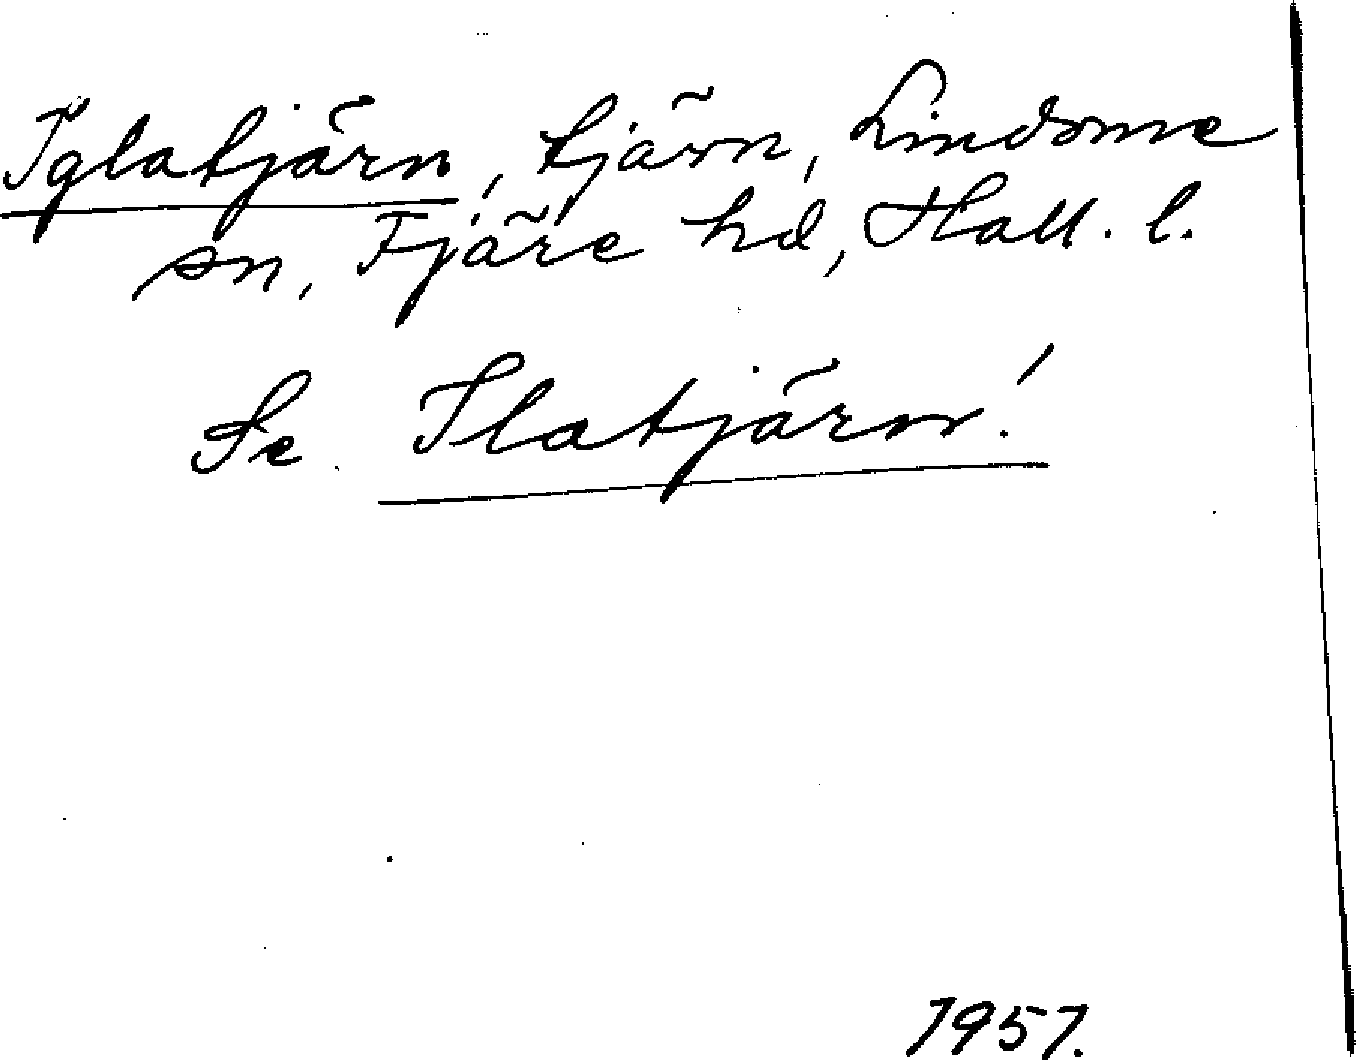 Iglatjärn, tjärn, Lindome
sn, Fjäre hd, Hall. l.
Se Ilatjärn!
1957.